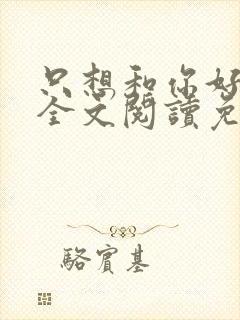 只想和你好
全文閱讀免
駱賓基